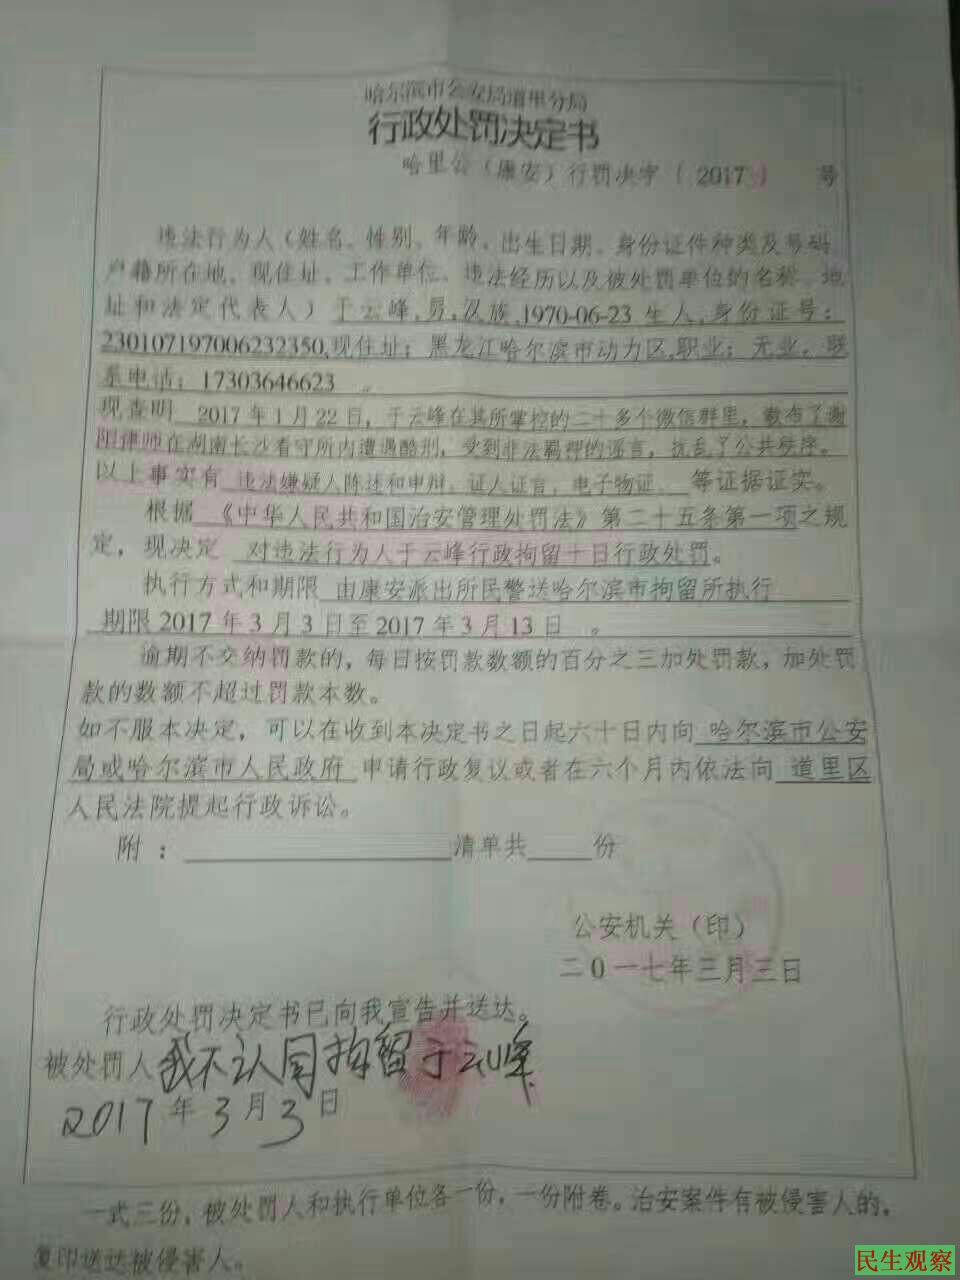 哈尔滨市公安局道里分局
行政处罚决定书
哈里公（康安）行罚决字（2017） 号
违法行为人（姓名、性别、年龄、出生日期、身份证件种类及号码、
户籍所在地、现住址、工作单位、违法经历以及被处罚单位的名称、地
址和法定代表人）于云峰,男,汉族,1970-06-23 生人,身份证号：
230107197006232350,现住址：黑龙江哈尔滨市动力区,职业：无业，联
系电话：17303646623 。
现查明 2017 年 1 月 22 日，于云峰在其所掌控的二十多个微信群里，散布了谢
阳律师在湖南长沙看守所内遭遇酷刑，受到非法羁押的谣言，扰乱了公共秩序。
以上事实有 违法嫌疑人陈述和申辩、证人证言、电子物证、 等证据证实。
根据 《中华人民共和国治安管理处罚法》第二十五条第一项之规
定，现决定 对违法行为人于云峰行政拘留十日行政处罚。
执行方式和期限 由康安派出所民警送哈尔滨市拘留所执行
期限 2017 年 3 月 3 日至 2017 年 3 月 13 日 。
逾期不交纳罚款的，每日按罚款数额的百分之三加处罚款，加处罚
款的数额不超过罚款本数。
如不服本决定，可以在收到本决定书之日起六十日内向 哈尔滨市公安
局或哈尔滨市人民政府 申请行政复议或者在六个月内依法向 道里区
人民法院提起行政诉讼。
附：清单共 份
公安机关（印）
二0一七年三月三日
行政处罚决定书已向我宣告并送达。
被处罚人 我不认同拘留于云峰
2017 年 3 月 3 日
一式三份，被处罚人和执行单位各一份，一份附卷。治安案件有被侵害人的，
复印送达被侵害人。
民生观察